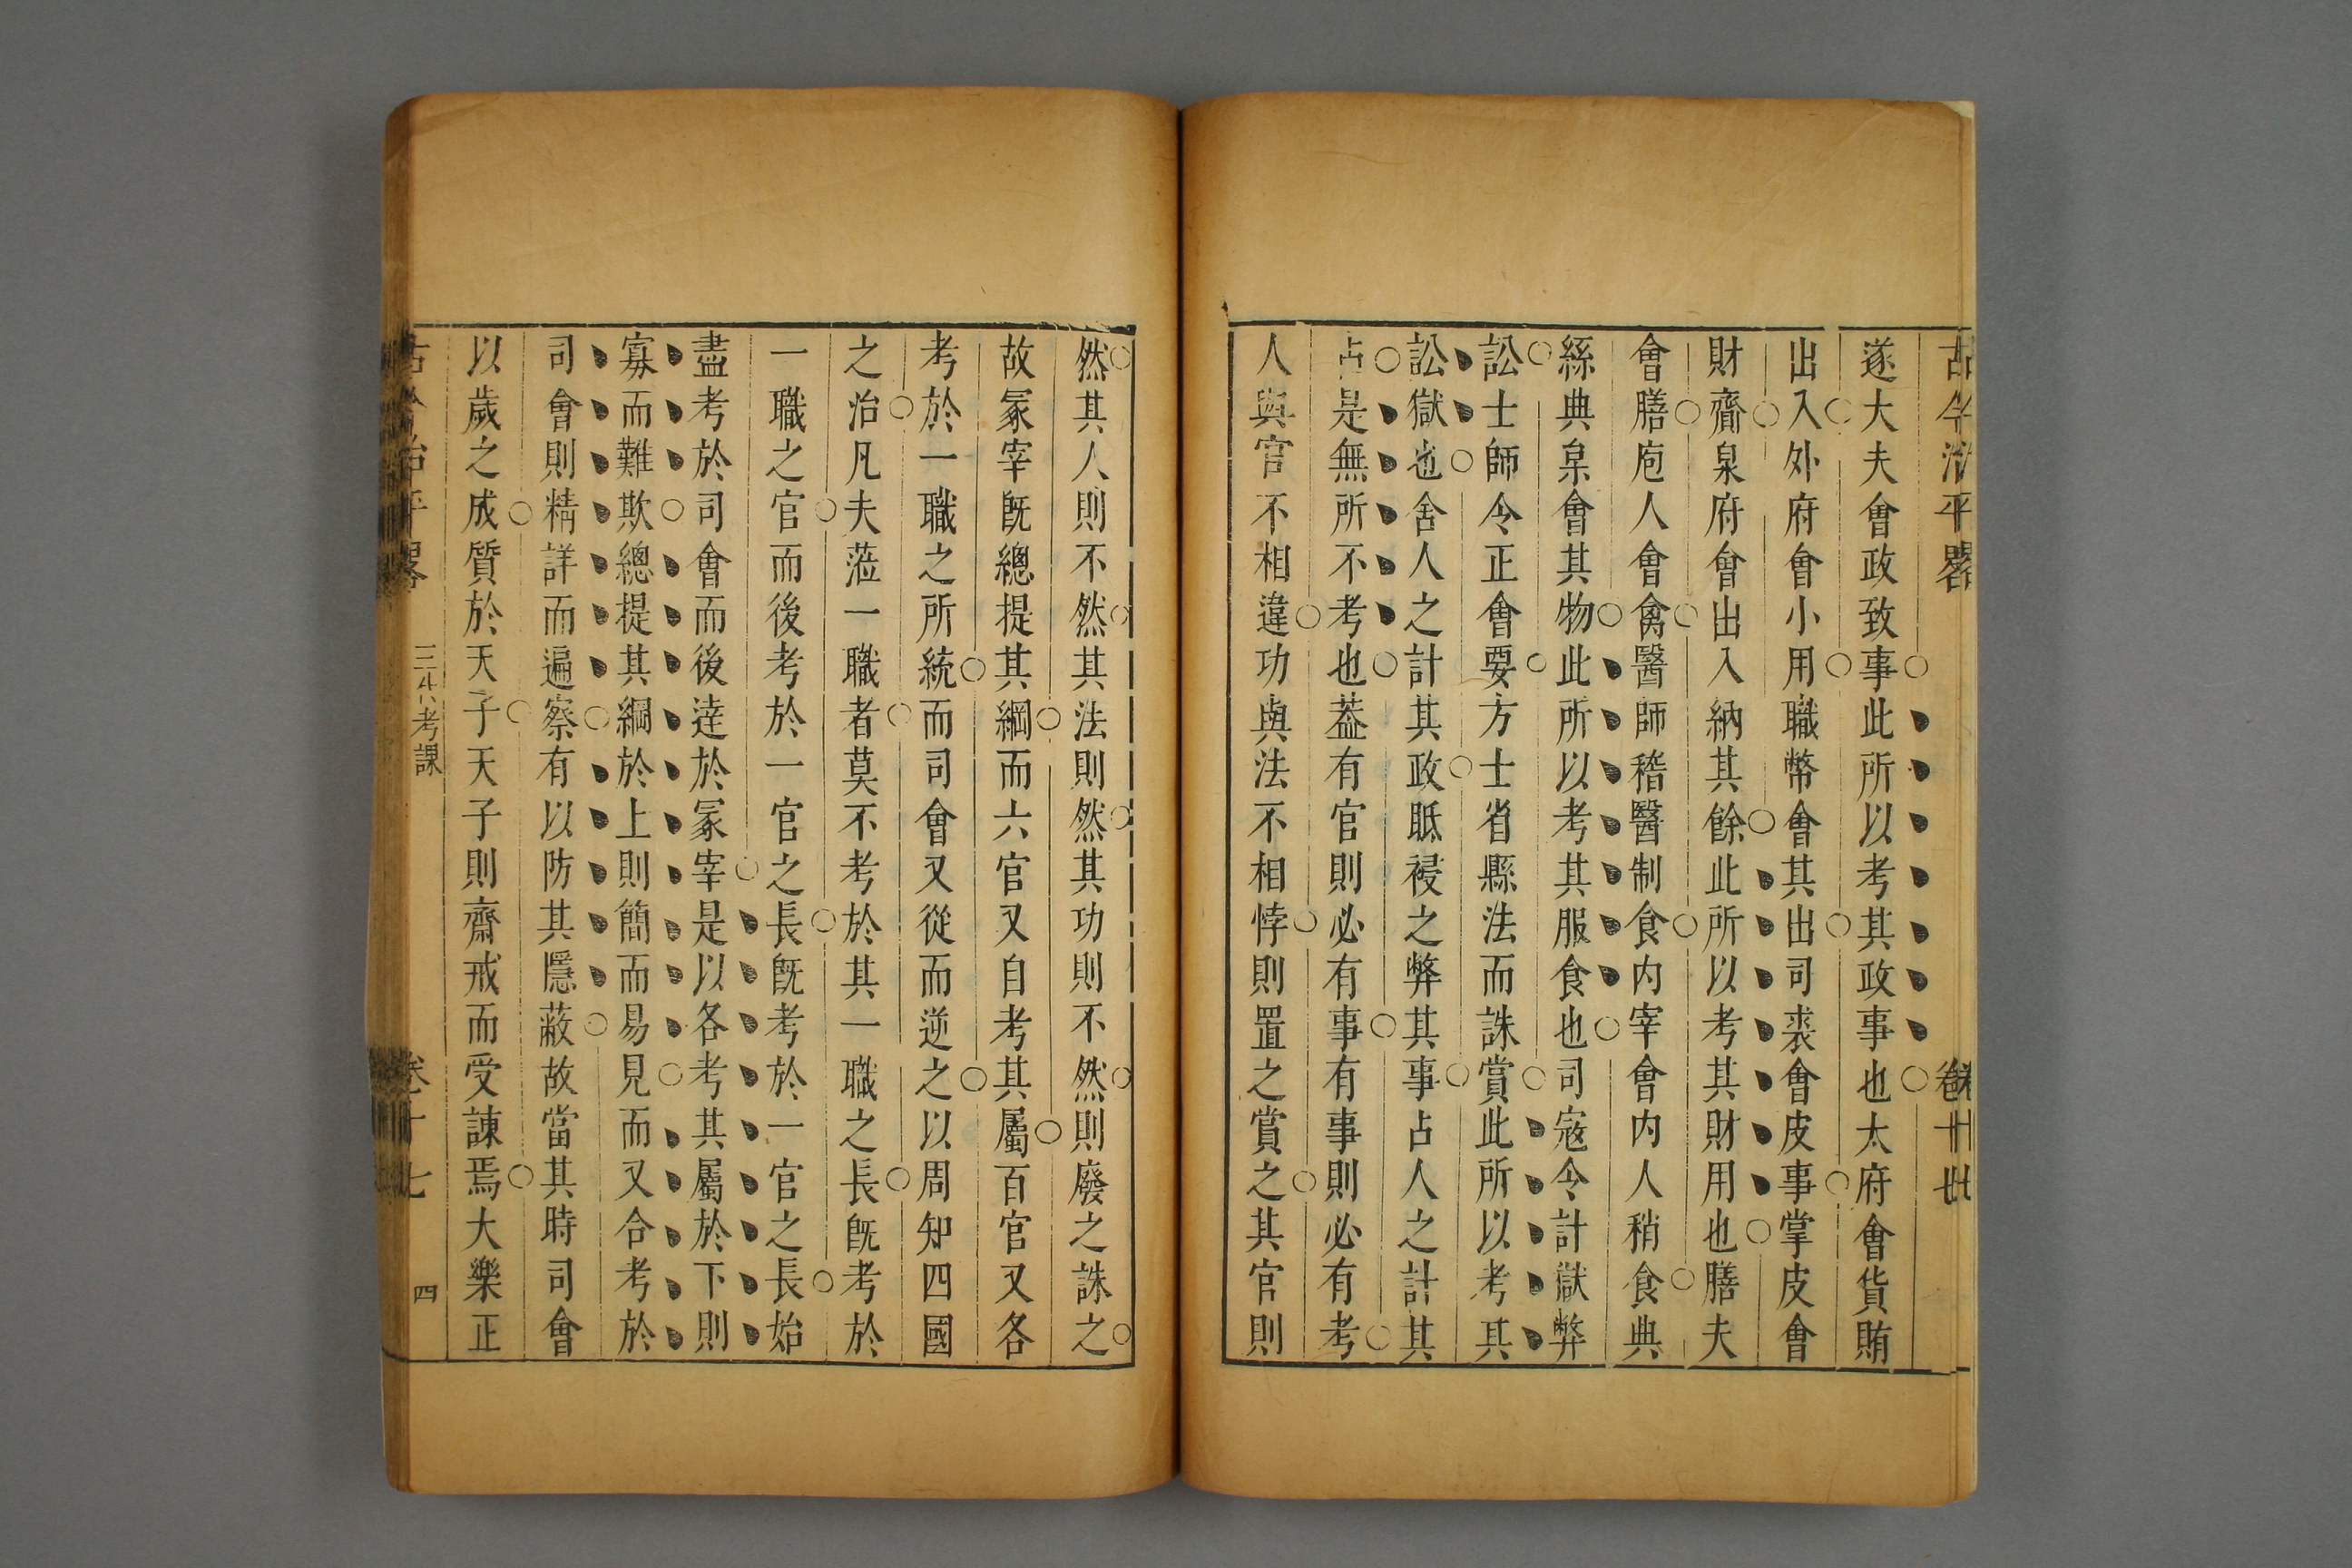 古今治平畧
卷十七
遂大夫會政致事此所以考其政事也太府會貨賄
出入外府會小用職幣會其出司裘會皮事掌皮會
財齎泉府會出入納其餘此所以考其財用也膳夫
會膳庖人會禽醫師稽醫制食内宰會内人稍食典
絲典枲會其物此所以考其服食也司寇令計獄弊
訟士師令正會要方士士省縣法而誅賞此所以考其
訟獄也舍人之計其政眡祲之弊其事占人之計其
占是無所不考也葢有官則必有事有事則必有考
人與官不相違功與法不相悖則置之賞之其官則
然其人則不然其法則然其功則不然則廢之誅之
故冢宰旣總提其綱而六官又自考其屬百官又各
考於一職之所統而司會又從而逆之以周知四國
之治凡夫蒞一職者莫不考於其一職之長旣考於
一職之官而後考於一官之長旣考於一官之長始
盡考於司會而後達於冢宰是以各考其屬於下則
寡而難欺總提其綱於上則簡而易見而又合考於
司會則精詳而遍察有以防其隱蔽故當其時司會
以歲之成質於天子天子則齋戒而受諫焉大樂正
古今治平畧
三代考課
卷十七
四